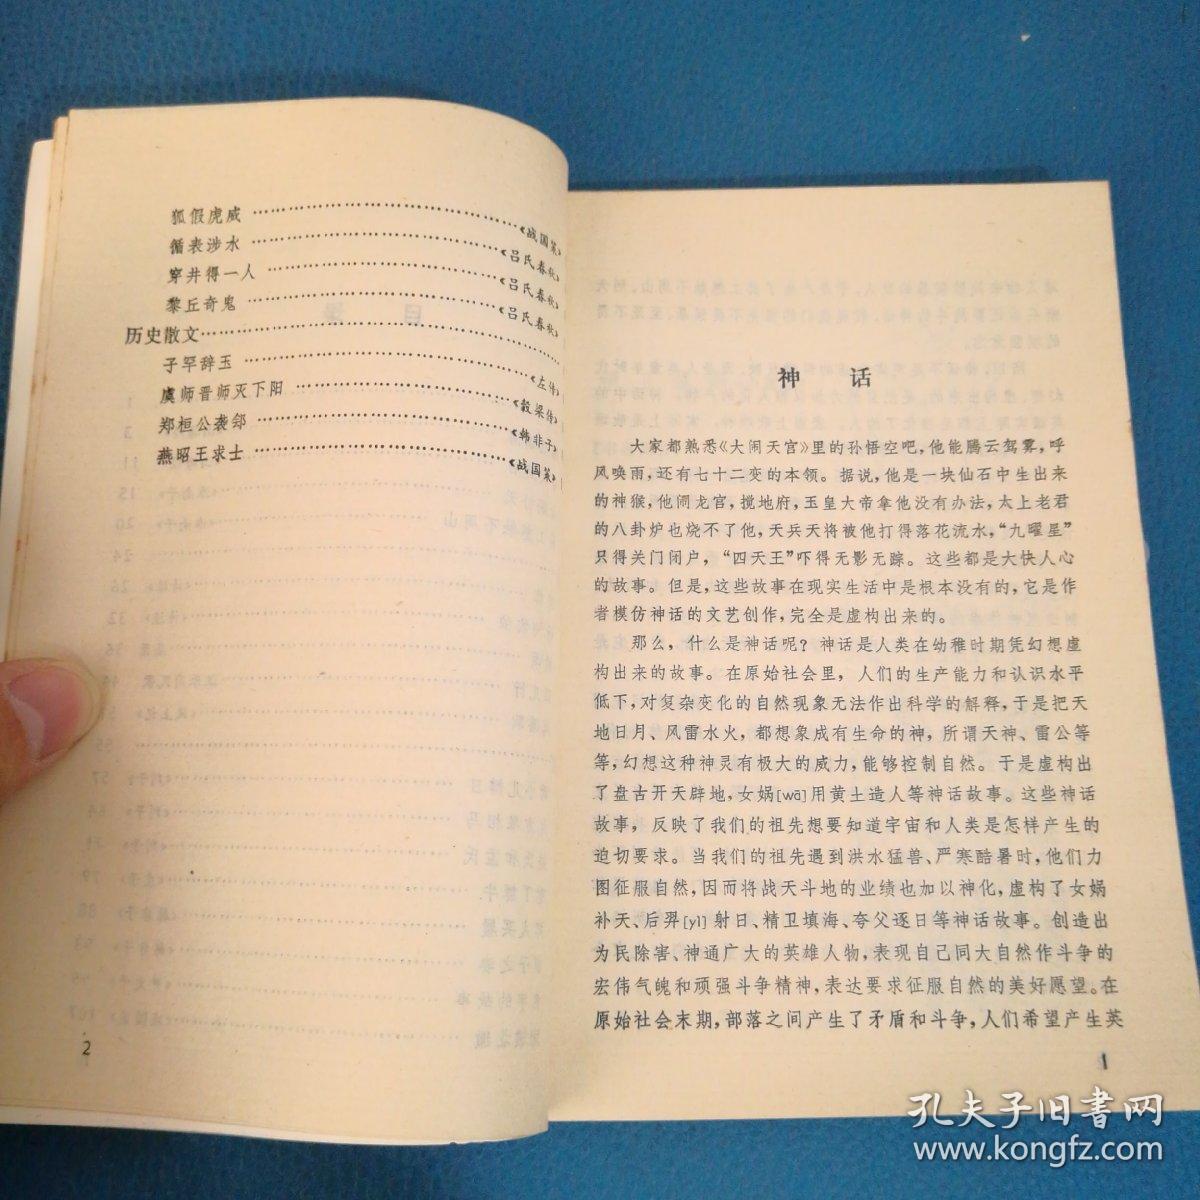 狐假虎威 ……………………………《战国策》
循表涉水 …………………………《吕氏春秋》
穿井得一人 ………………………《吕氏春秋》
黎丘奇鬼 …………………………《吕氏春秋》
历史散文……………………………………
子罕辞玉 ……………………………《左传》
虞师晋师灭下阳 ……………………《穀梁传》
郑桓公袭郐 …………………………《韩非子》
燕昭王求士 …………………………《战国策》
2
神 话
大家都熟悉《大闹天宫》里的孙悟空吧，他能腾云驾雾，呼
风唤雨，还有七十二变的本领。据说，他是一块仙石中生出来
的神猴，他闹龙宫，搅地府，玉皇大帝拿他没有办法，太上老君
的八卦炉也烧不了他，天兵天将被他打得落花流水，“九曜星”
只得关门闭户，“四天王”吓得无影无踪。这些都是大快人心
的故事。但是，这些故事在现实生活中是根本没有的，它是作
者模仿神话的文艺创作，完全是虚构出来的。
那么，什么是神话呢？神话是人类在幼稚时期凭幻想虚
构出来的故事。在原始社会里，人们的生产能力和认识水平
低下，对复杂变化的自然现象无法作出科学的解释，于是把天
地日月、风雷水火，都想象成有生命的神，所谓天神、雷公等
等，幻想这种神灵有极大的威力，能够控制自然。于是虚构出
了盘古开天辟地，女娲[wā]用黄土造人等神话故事。这些神话
故事，反映了我们的祖先想要知道宇宙和人类是怎样产生的
迫切要求。当我们的祖先遇到洪水猛兽、严寒酷暑时，他们力
图征服自然，因而将战天斗地的业绩也加以神化，虚构了女娲
补天、后羿[yì]射日、精卫填海、夸父逐日等神话故事。创造出
为民除害、神通广大的英雄人物，表现自己同大自然作斗争的
宏伟气魄和顽强斗争精神，表达要求征服自然的美好愿望。在
原始社会末期，部落之间产生了矛盾和斗争，人们希望产生英
1
孔夫子旧书网
www.kongfz.com